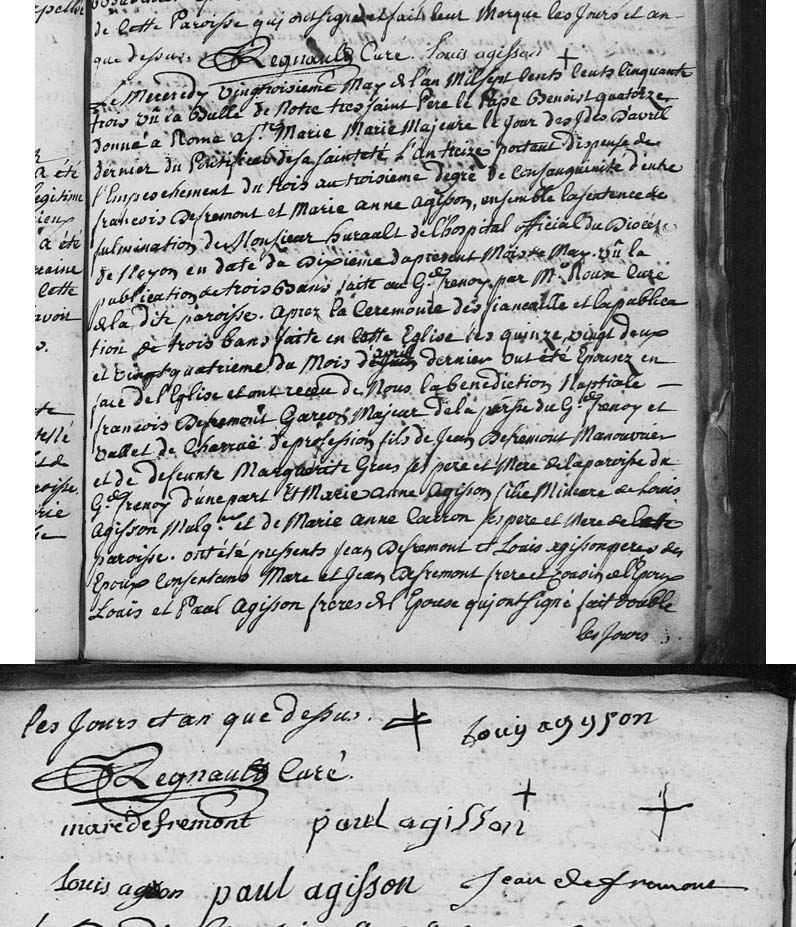 de cette Paroisse qui ont signé et fait leur Marque les Jours et an
que dessus. Regnault Curé. Louis agisson
Le Mercredy vingtroisieme May de l'an Mil sept cents cinquante
trois vû la Bulle de Notre tres saint Pere le Pape Benoist quatorze
donné a Rome a Ste Marie Marie Majeure le Jour des Ides d'avril
dernier du Pontificat de sa sainteté l'an treize portant dispense de
l'Empeschement du trois au troisieme degré de Consanguinité d'entre
francois Defremont et Marie anne Agisson, ensemble la sentence de
fulmination de Monsieur hurault de l'hospital official du Diocese
de Noyon en date du Dixieme du present Mois de May. vû la
publication de trois Bans faite au Gd frenoy par Mr Roux Curé
de la dite paroisse. Aprez la Ceremonie des fiancaille et la publica
tion de trois bans faite en cette Eglise les quinze, vingt deux
et vingt quatrieme du Mois d'avril dernier ont été Epousez en
face de l'Eglise et ont receu de Nous la benediction Nuptiale
francois Defremont Garcon Majeur de la parsse du Gd frenoy et
vallet de Charruë de profession fils de Jean Defremont Manouvrier
et de defeunte Marguerite Gras ses pere et Mere de la paroisse du
Gd frenoy d'une part Et Marie Anne Agisson fille Mineure de Louis
Agisson et de Marie Anne Carron ses pere et Mere de cette
paroisse. ont été presents Jean Defremont et Louis agisson peres des
Epoux Consentans Marc et Jean Defremont frere et cousin de l'Epoux
Louis et Paul Agisson freres de l'Epouse qui ont signé fait double
les Jours
les Jours et an que dessus. Louis agysson
Regnault Curé.
marc defremont paul agisson
Louis agisson paul agisson Jean de fremont